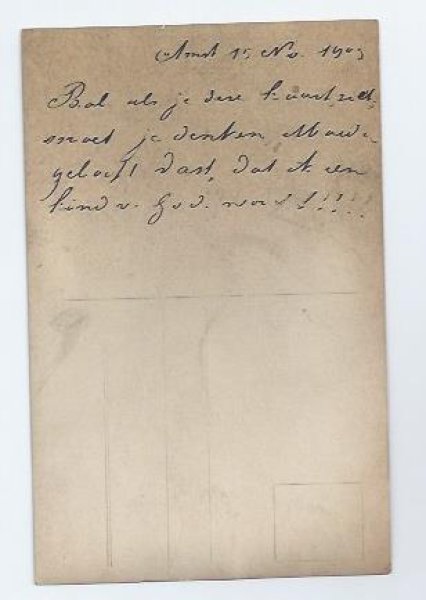 Amst 15 Nov. 190
Bol als je deze kaart ziet,
moet je denken, Moeder
gelooft vast, dat ik een
kind v. God. word!!!!!